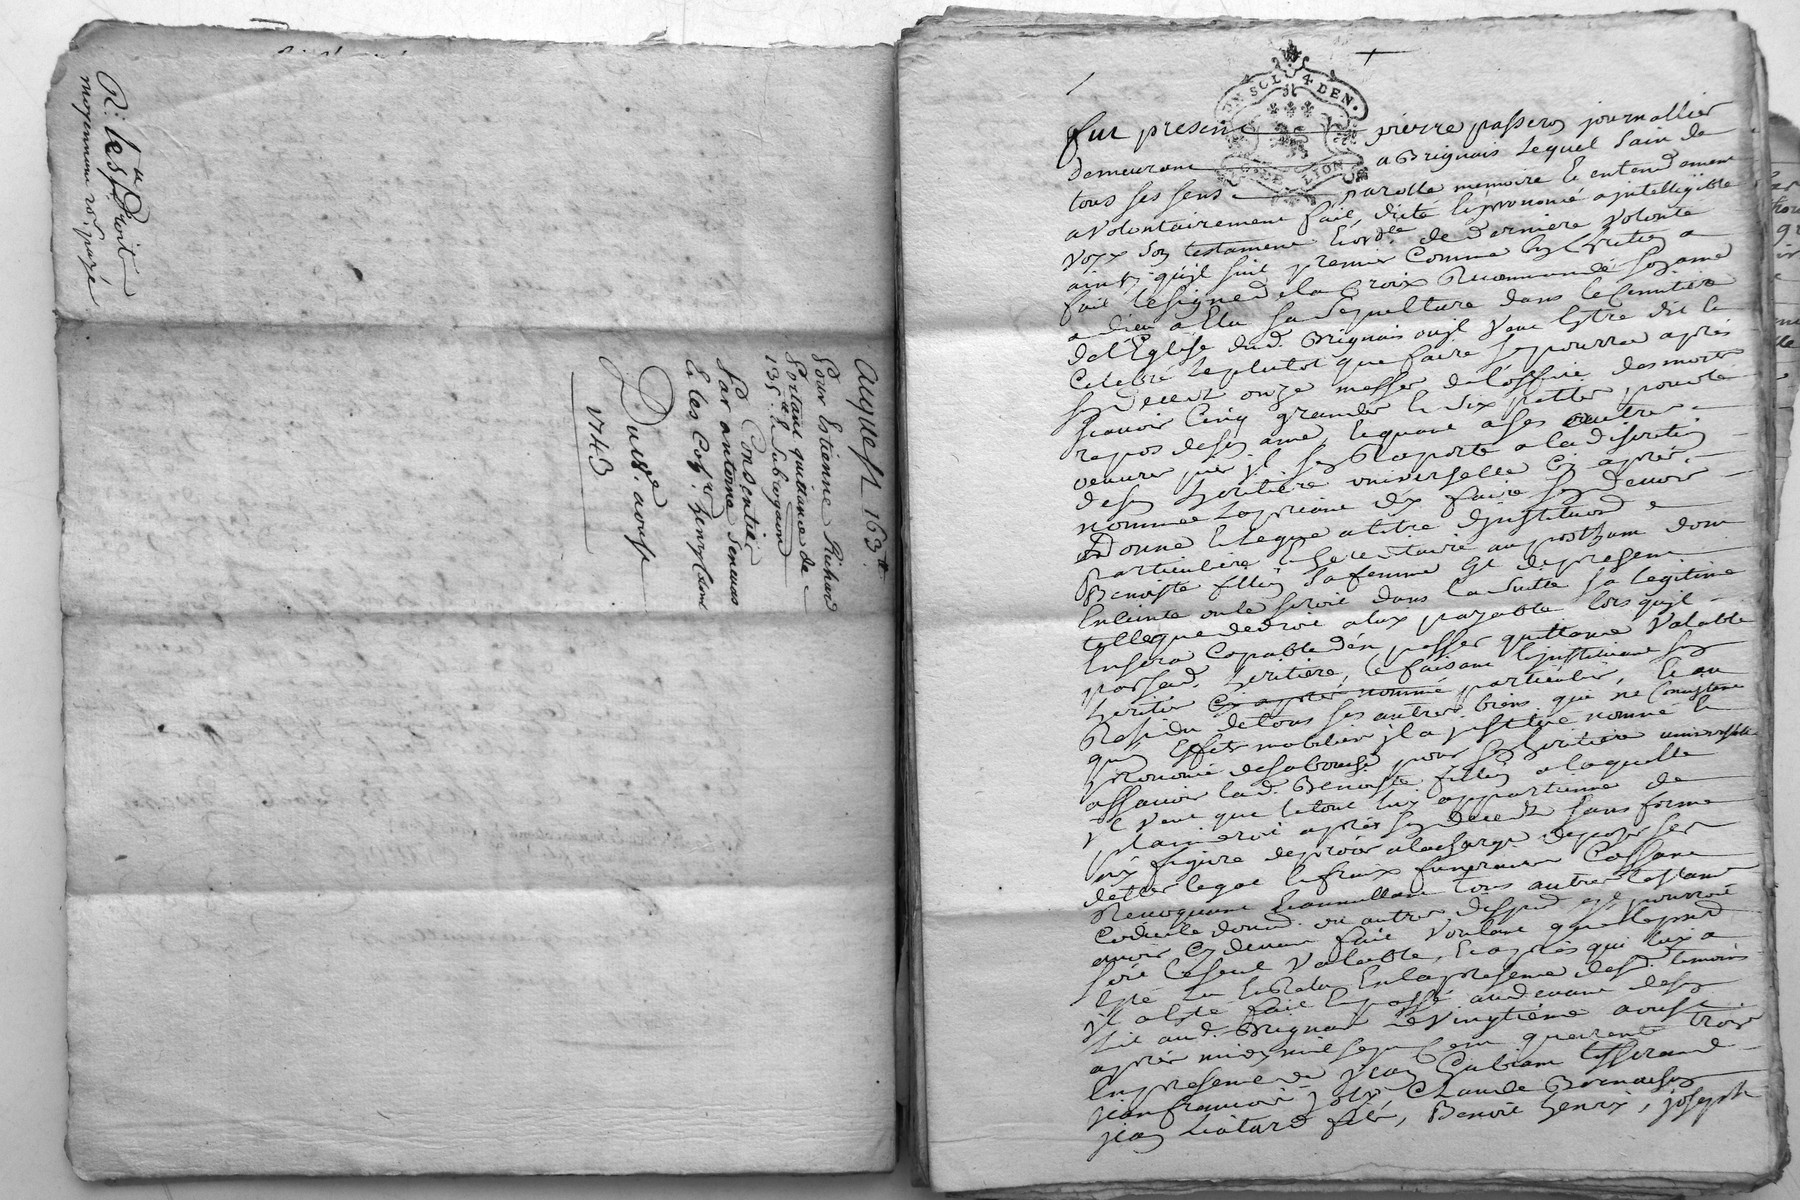 Droit
moyennant 20 s. payé
aquest 163
Pour Estienne Richard
Portant quittance de
135 Et Subrogaon
Consentie
Par antoine
Du 18e. aoust
1743
UN SOL 4 DEN.
LION
fut present pierre passero journallier
demeurant a Brignais Lequel Sain de
tous ses sens parolle memoire Et entendement
a volontairement fait, dicté Et prononcé a jntelligible
voyx Son testament Et ordce. de derniere volonté
ainsy qu'jl suit premier Comme bon Chretien a
fait le signe de la Croix Recommandé Son ame
a dieu a Elu sa sepulture dans le Cimitiere
de l'Eglise dud. Brignais ou jl veut Estre dit Et
Celebré le plutot que faire Se pourra après
son decedz onze messes de l'office des morts
scavoir Cinq grandes Et six petittes pour le
repos de son ame, Et quant a ses autres
oeuvres pies jl s'en Raporte a la discretion
de son heritiere universelle Cy après
nommée La priant d'en faire Son devoir
Donne Et Legue a titre d'jnstitution
particuliere Et hereditaire au posthume dont
Benoiste fillion Sa femme Est de present
Enceinte ou le seroit dans La Suitte Sa legitime
telle que de droit a luy payable lors qu'jl
En sera Capable d'en passer quittance Valable
par sad. heritiere, Ce faisant l'jnstituant son
heritier Cy après nommé particulier, Et au
Residu de tous ses autres biens qui ne Consistent
qu'en Effets mobiliers jl a jnstitué nommé Et
prononcé de sa bouche pour Son heritiere universelle
assavoir lad. Benoiste fillion a laquelle
jl veut que le tout luy appartienne de
plain droit après Son decedz Sans forme
ny figure de procès a la charge de payer ses
dettes legat Et fraix funeraux Cassant
Revoquant Et annullant tous autres testamt
Codicile donnaon ou autres dispod. qu'jl pourroit
avoir Cy devant fait Voulant que Le present
soit Le seul Valable, Et après qui luy a
Esté Lu Et Relu En la presence desd. temoins
jl a Esté fait Et passé
fait aud. Brignais Le Vingtieme aoust
après midy mil sept Cent quarente trois
En presence de jean Gubian tisserand
jean francois joly, Claude Bornachon
jean Liotard fils, Benoit henry, joseph